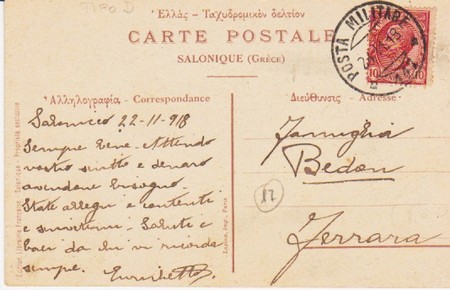 TIPO D
Ἑλλὰς - Ταχυδρομικὸν δελτίον
CARTE POSTALE
SALONIQUE (GRÈCE)
POSTA MILITARE
10 10
Ἀλληλογραφία - Correspondance
Διεύθυνσις - Adresse
Salonicco 22-11-918
Sempre bene - Attendo
vostro scritto e denaro
avendone bisogno.
State allegri e contenti
e Saluti e
baci da chi vi ricorda
sempre.
Famiglia
Bedon
12
Ferrara